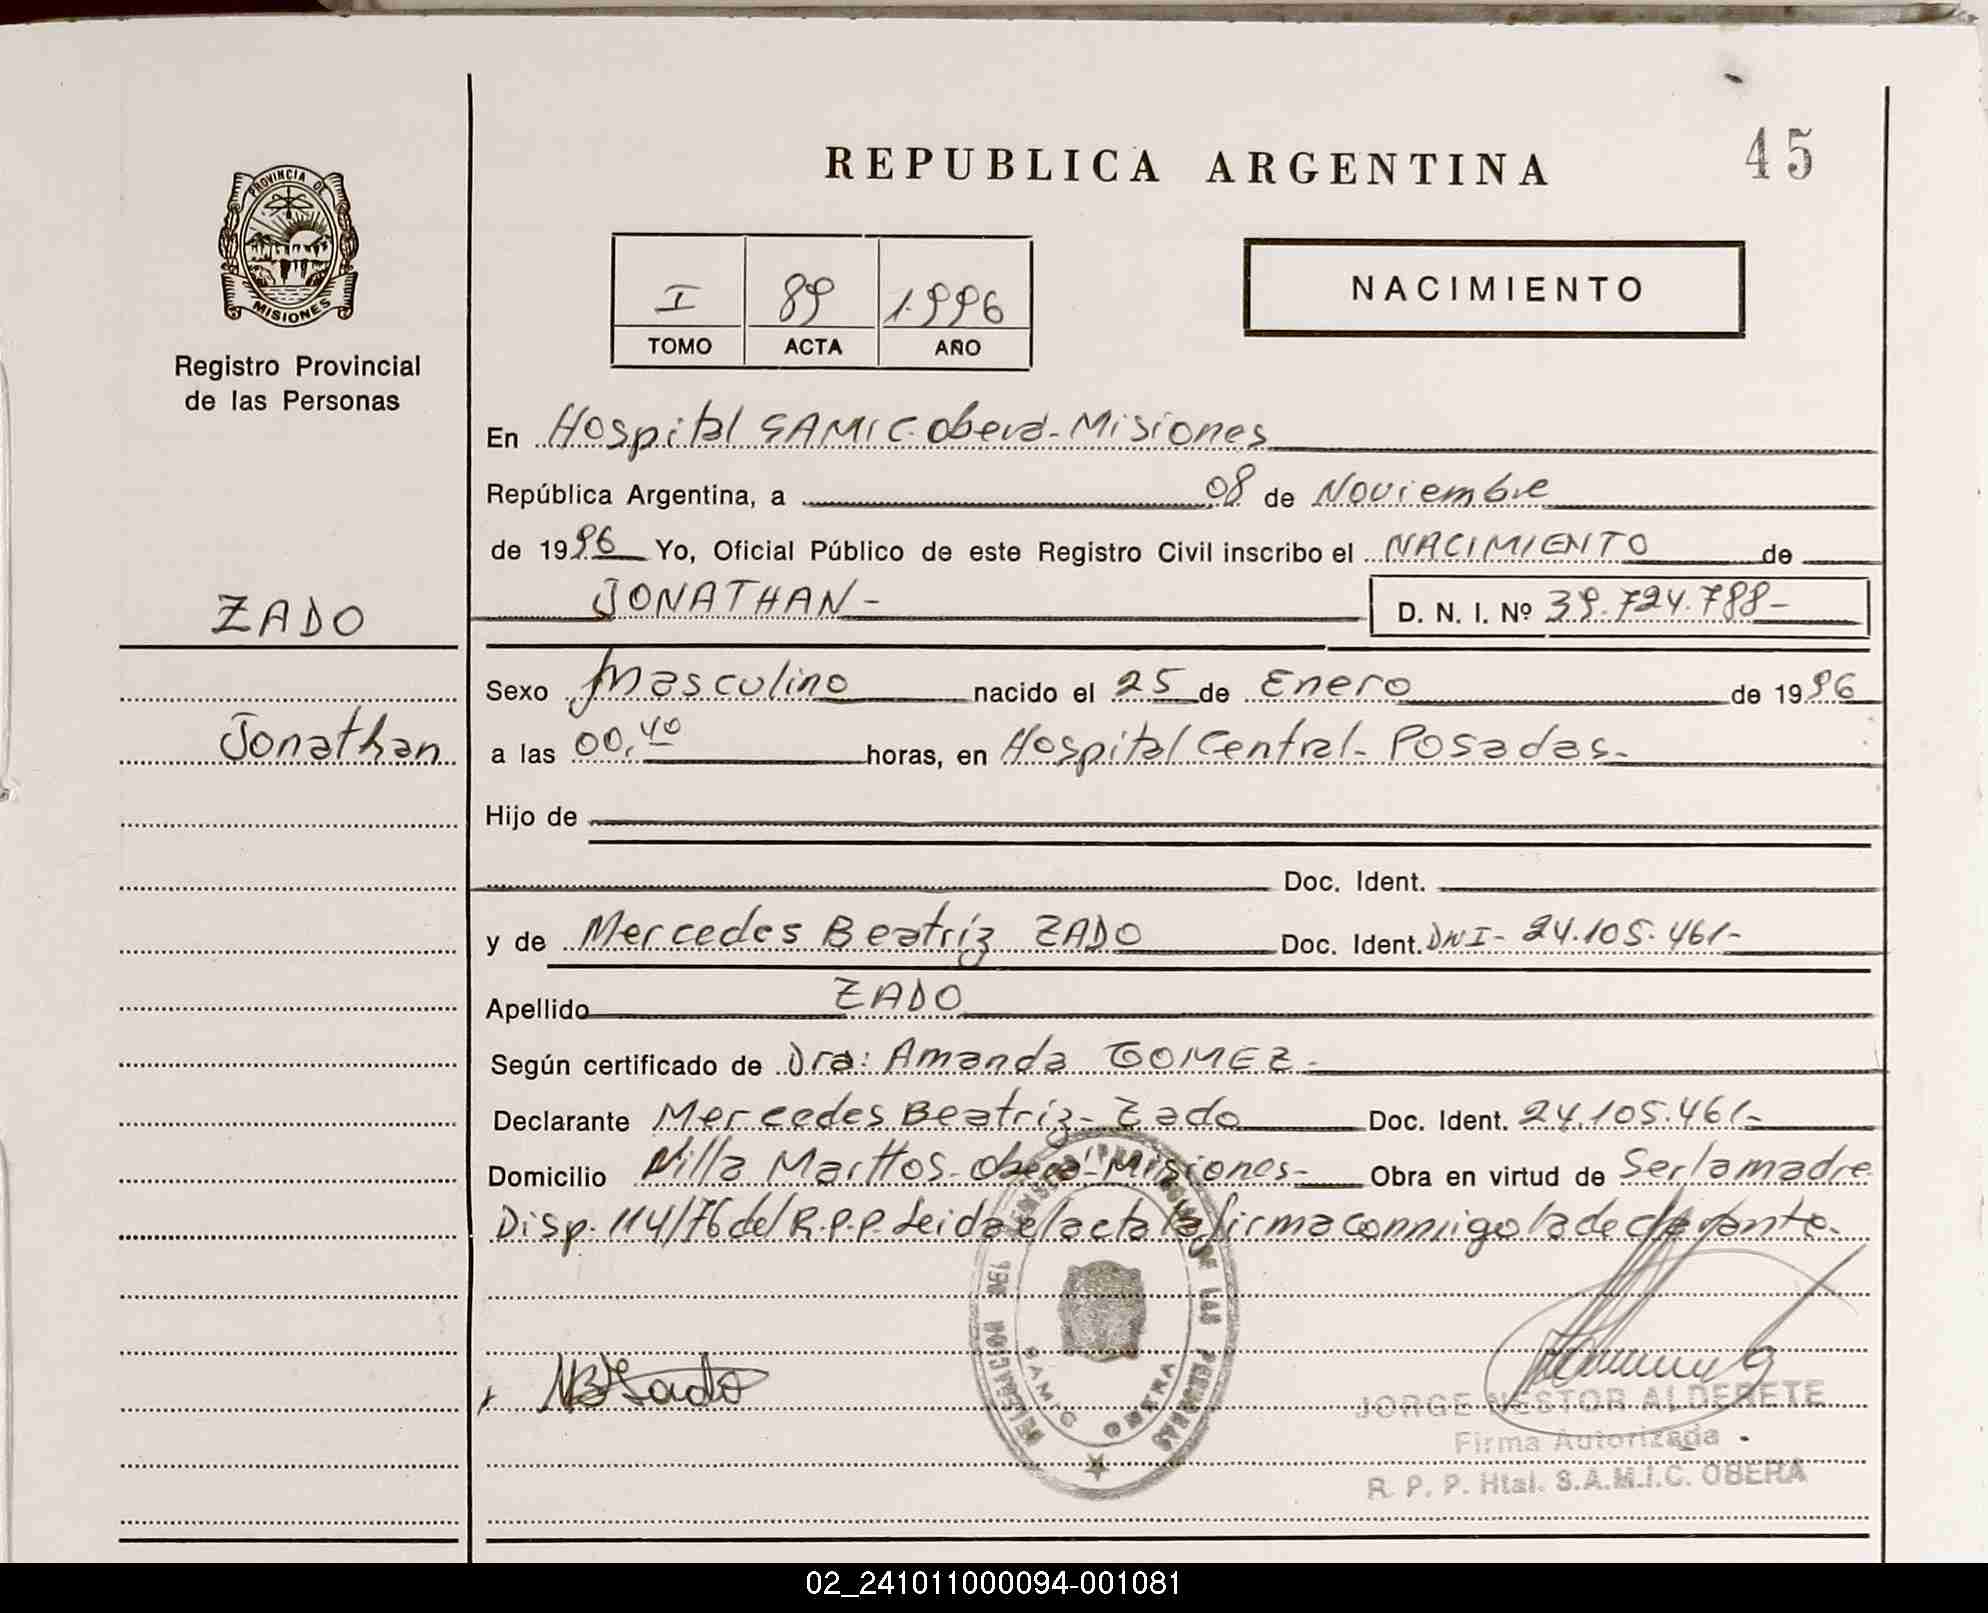 REPUBLICA ARGENTINA
45
PROVINCIA DE
MISIONES
Registro Provincial
de las Personas
I 89 1.996
TOMO ACTA AÑO
NACIMIENTO
En Hospital SAMIC. Oberá - Misiones
República Argentina, a 08 de Noviembre
de 1996 Yo, Oficial Público de este Registro Civil inscribo el NACIMIENTO de
JONATHAN - D. N. I. Nº 39.724.788-
ZADO
Jonathan
Sexo Masculino nacido el 25 de Enero de 1996
a las 00,40 horas, en Hospital Central - Posadas.
Hijo de
Doc. Ident.
y de Mercedes Beatríz ZADO Doc. Ident. DNI - 24.105.461-
Apellido ZADO
Según certificado de Dra: Amanda GOMEZ -
Declarante Mercedes Beatriz - Zado Doc. Ident. 24.105.461-
Domicilio Villa Marttos - Oberá - Misiones - Obra en virtud de Ser la madre
Disp. 114/76 del R.P.P. Leida el acta la firma conmigo la declarante.
DELEGACION DEL REGISTRO PROVINCIAL DE LAS PERSONAS
SAMIC OBERA
MBZado
JORGE NESTOR ALDERETE
Firma Autorizada
R. P. P. Htal. S.A.M.I.C. OBERA
02_241011000094-001081